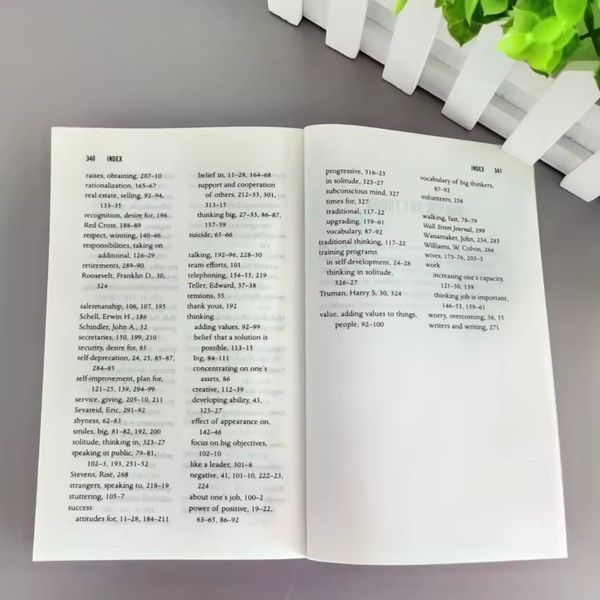 340 INDEX
raises, obtaining, 207–10
rationalization, 165–67
real estate, selling, 92–94,
133–35
recognition, desire for, 196
Red Cross, 188–89
respect, winning, 140–46
responsibilities, taking on
additional, 126–29
retirements, 289–90
Roosevelt, Franklin D., 30,
324
salesmanship, 106, 107, 195
Schell, Erwin H., 186
Schindler, John A., 32
secretaries, 150, 199, 210
security, desire for, 85
self-deprecation, 24, 25, 85–87,
284–85
self-improvement, plan for,
121–25, 139, 294–99
service, giving, 205–10, 211
Sevareid, Eric, 291–92
shyness, 62–83
smiles, big, 81–82, 192, 200
solitude, thinking in, 323–27
speaking in public, 79–81,
102–3, 193, 251–52
Stevens, Rise, 268
strangers, speaking to, 218–19
stuttering, 105–7
success
attitudes for, 11–28, 184–211
belief in, 11–28, 164–68
support and cooperation
of others, 212–33, 301,
313–15
thinking big, 27–33, 86–87,
157–59
suicide, 65–66
talking, 192–96, 228–30
team efforts, 101
telephoning, 154–55, 219
Teller, Edward, 37–38
tensions, 55
thank yous, 192
thinking
adding values, 92–99
belief that a solution is
possible, 113–15
big, 84–111
concentrating on one's
assets, 86
creative, 112–39
developing ability, 43,
325–27
effect of appearance on,
142–46
focus on big objectives,
102–10
like a leader, 301–8
negative, 41, 101–10, 222–23,
224
about one's job, 100–2
power of positive, 19–22,
63–65, 86–92
INDEX 341
progressive, 316–23
in solitude, 323–27
subconscious mind, 327
times for, 327
traditional, 117–22
upgrading, 159–61
vocabulary, 87–92
traditional thinking, 117–22
training programs
in self-development, 24–28
thinking in solitude,
326–27
Truman, Harry S, 30, 324
value, adding values to things,
people, 92–100
vocabulary of big thinkers,
87–92
volunteers, 256
walking, fast, 78–79
Wall Street Journal, 299
Wanamaker, John, 234, 283
Williams, W. Colvin, 266
wives, 173–76, 203–5
work
increasing one's capacity,
121–30, 139
thinking job is important,
146–53, 159–61
worry, overcoming, 56, 53
writers and writing, 271